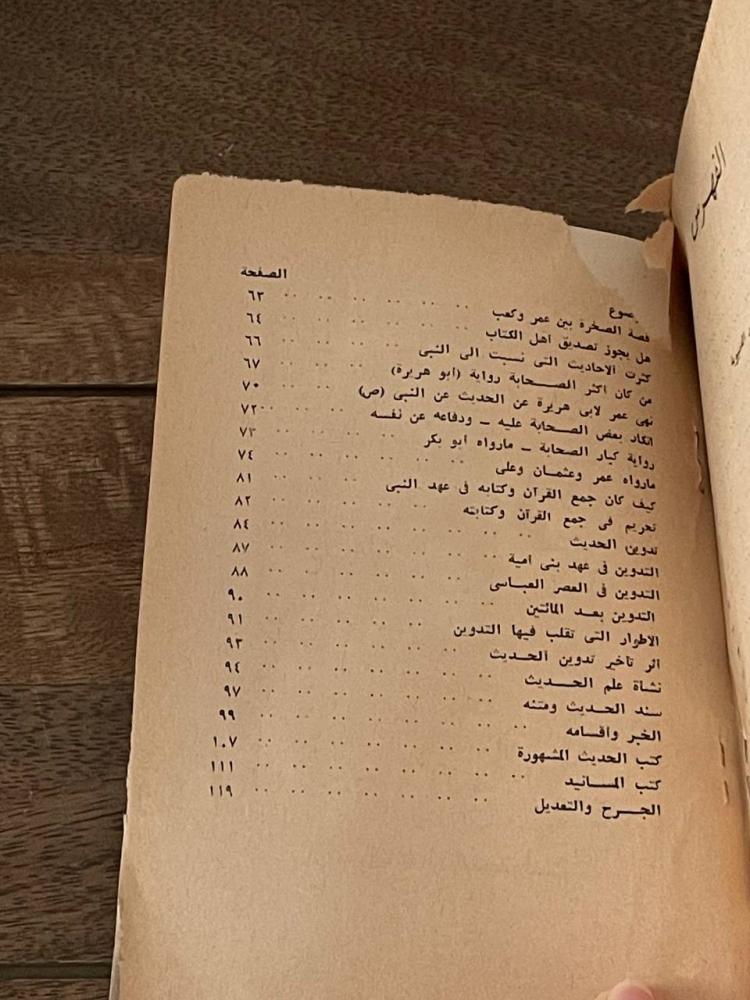 الفهرس
ضوع الصفحة
قصة الصخرة بين عمر وكعب ٦٣
هل يجوز تصديق أهل الكتاب ٦٤
كثرت الاحاديث التى نسبت الى النبى ٦٦
من كان اكثر الصحابة رواية (أبو هريرة) ٦٧
نهى عمر لابى هريرة عن الحديث عن النبى (ص) ٧٠
انكار بعض الصحابة عليه ــ ودفاعه عن نفسه ٧٢
رواية كبار الصحابة ــ مارواه ابو بكر ٧٣
مارواه عمر وعثمان وعلى ٧٤
كيف كان جمع القرآن وكتابه فى عهد النبى ٨١
تحريم فى جمع القرآن وكتابته ٨٢
تدوين الحديث ٨٤
التدوين فى عهد بنى امية ٨٧
التدوين فى العصر العباسى ٨٨
التدوين بعد المائتين ٩٠
الاطوار التى تقلب فيها التدوين ٩١
اثر تاخير تدوين الحديث ٩٣
نشأة علم الحديث ٩٤
سند الحديث ومتنه ٩٧
الخبر وأقسامه ٩٩
كتب الحديث المشهورة ١٠٧
كتب المسانيد ١١١
الجرح والتعديل ١١٩